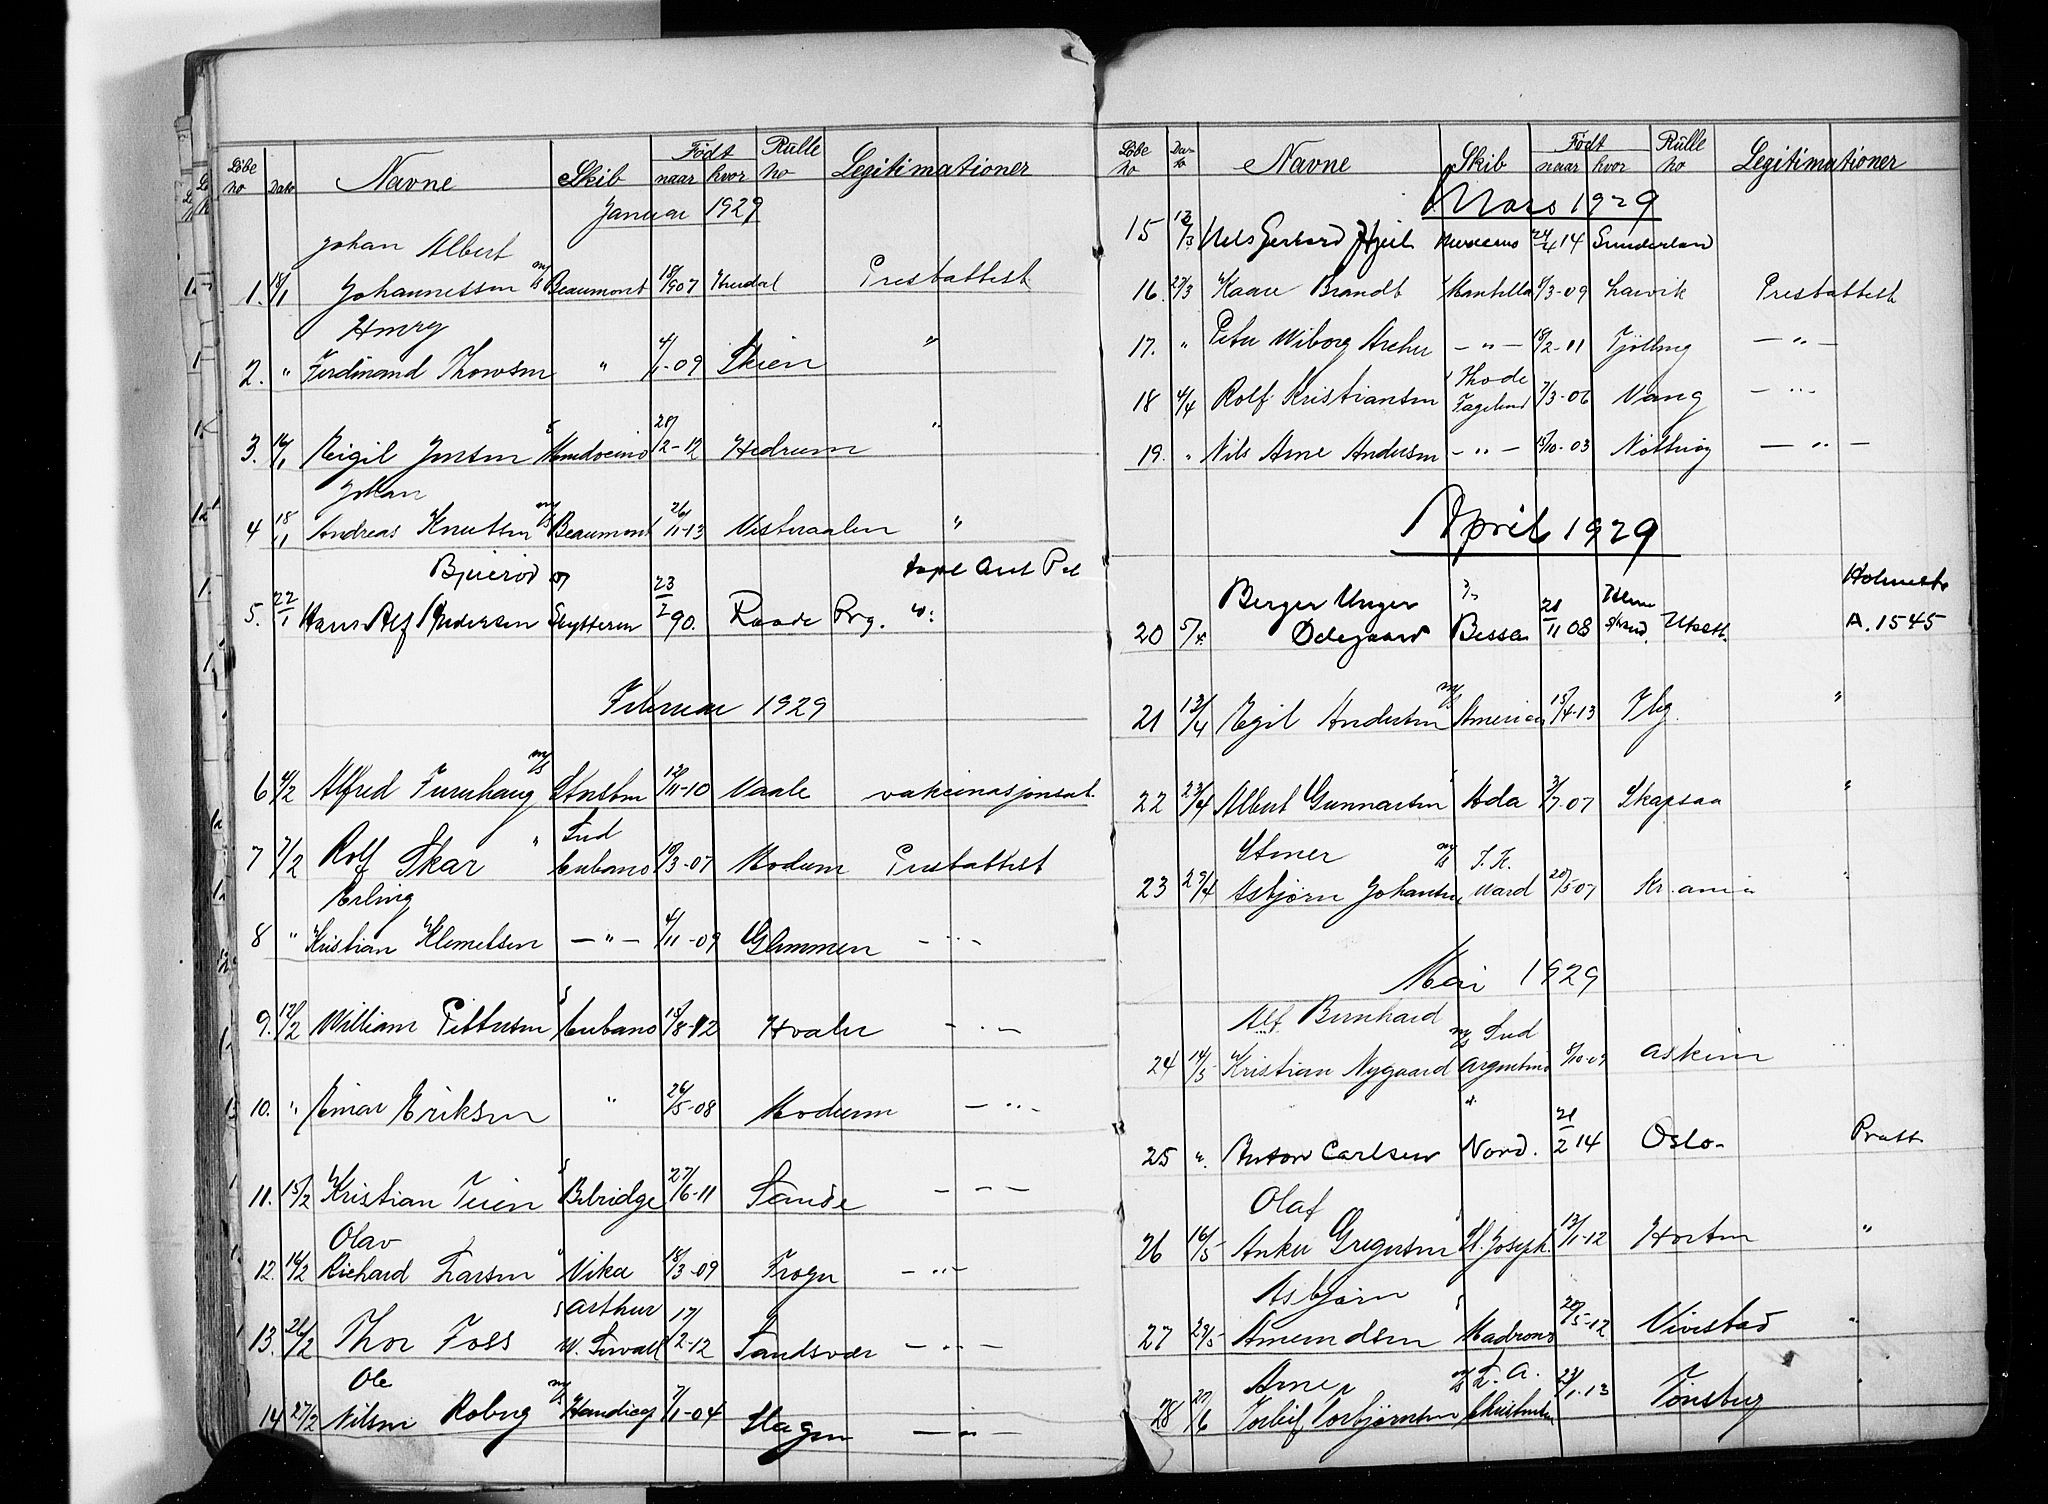 Løbe no Dato Navne Skib Født naar hvor Rulle no Legitimationer
Januar 1929
Johan Albert
1. 18/1 Johannessen m/s Beaumont 18/9 07 Hurdal Prestattest
Henry
2. " Ferdinand Thowsen " 4/1-09 Skien "
3. 16/1 Eigil Jensen s Mendocino 28/2-12 Hedrum "
Johan
4 18/1 Andreas Knutsen m/s Beaumont 26/11-13 Vesteraalen "
Bjuerød
5. 22/1 Hans Alf Andersen Skytteren 23/2 90. Raade Prg.
Februar 1929
6 4/2 Alfred Furuhaug m/s 12/11-10 Vaale vaksinasjonsat.
Sud
7 7/2 Rolf Skar " Cubano 19/3-07 Modum Prestattest
Erling
8 " Kristian Klemetsen — " — 4/11-09 Glemmen — " —
9. 12/2 William Pettersen s Cubano 15/8-12 Hvaler — " —
10. " Einar Eriksen " 26/5-08 Modum — " —
11. 15/2 Kristian Teien s Belridge 27/6-11 Sande — " —
Olav
12. 16/2 Richard Larsen " Vika 18/3-09 Frogn — " —
Arthur
13. 26/2 Thor Foss s W. Sewall 17/2-12 Sandsvær — " —
Ole
14 27/2 Nilsen Roberg m/s Handicap 7/1-04 Slagen — " —
Løbe no Dato Navne Skib Født naar hvor Rulle no Legitimationer
Mars 1929
15 12/3 Nils Gerhard 24/4 14 Sunderland
16. 27/3 Kaare Brandt Mantilla 8/3-09 Larvik Prestattest
17. " Peter Wiborg Archer — " — 18/2-11 Tjølling — " —
Thode
18 4/4 Rolf Kristiansen Fagelund 7/3-06 Vang — " —
19. " Nils Arne Andersen — " — 15/10-03 Nøtterøy — " —
April 1929
Berger Unger
20 5/4 Ødegaard Bessa 28/11 08 A. 1545
21 12/4 Egil Andersen m/s America 15/4-13
22 23/4 Albert Gunnarsen Ada 3/7-07 Skapsaa "
Stener m/s J. K.
23 29/4 Asbjørn Johansen Ward 20/5 07 Kr.ania "
Mai 1929
Alf Bernhard m/s Sud
24 14/5 Kristian Nygaard Argentino 8/10-09 Askim "
25 ". Anton Carlsen Nord. 21/2 14 Oslo- Pratt
Olaf
26 16/5 Anker Gregersen St. Joseph. 13/1-12 Horten "
Asbjørn
27 29/5 Amundsen s Madrono 20/5-12 Vivestad "
Arner m/s L. A.
28 20/6 Torleif Torbjørnsen Christensen 23/1-13 Tønsberg